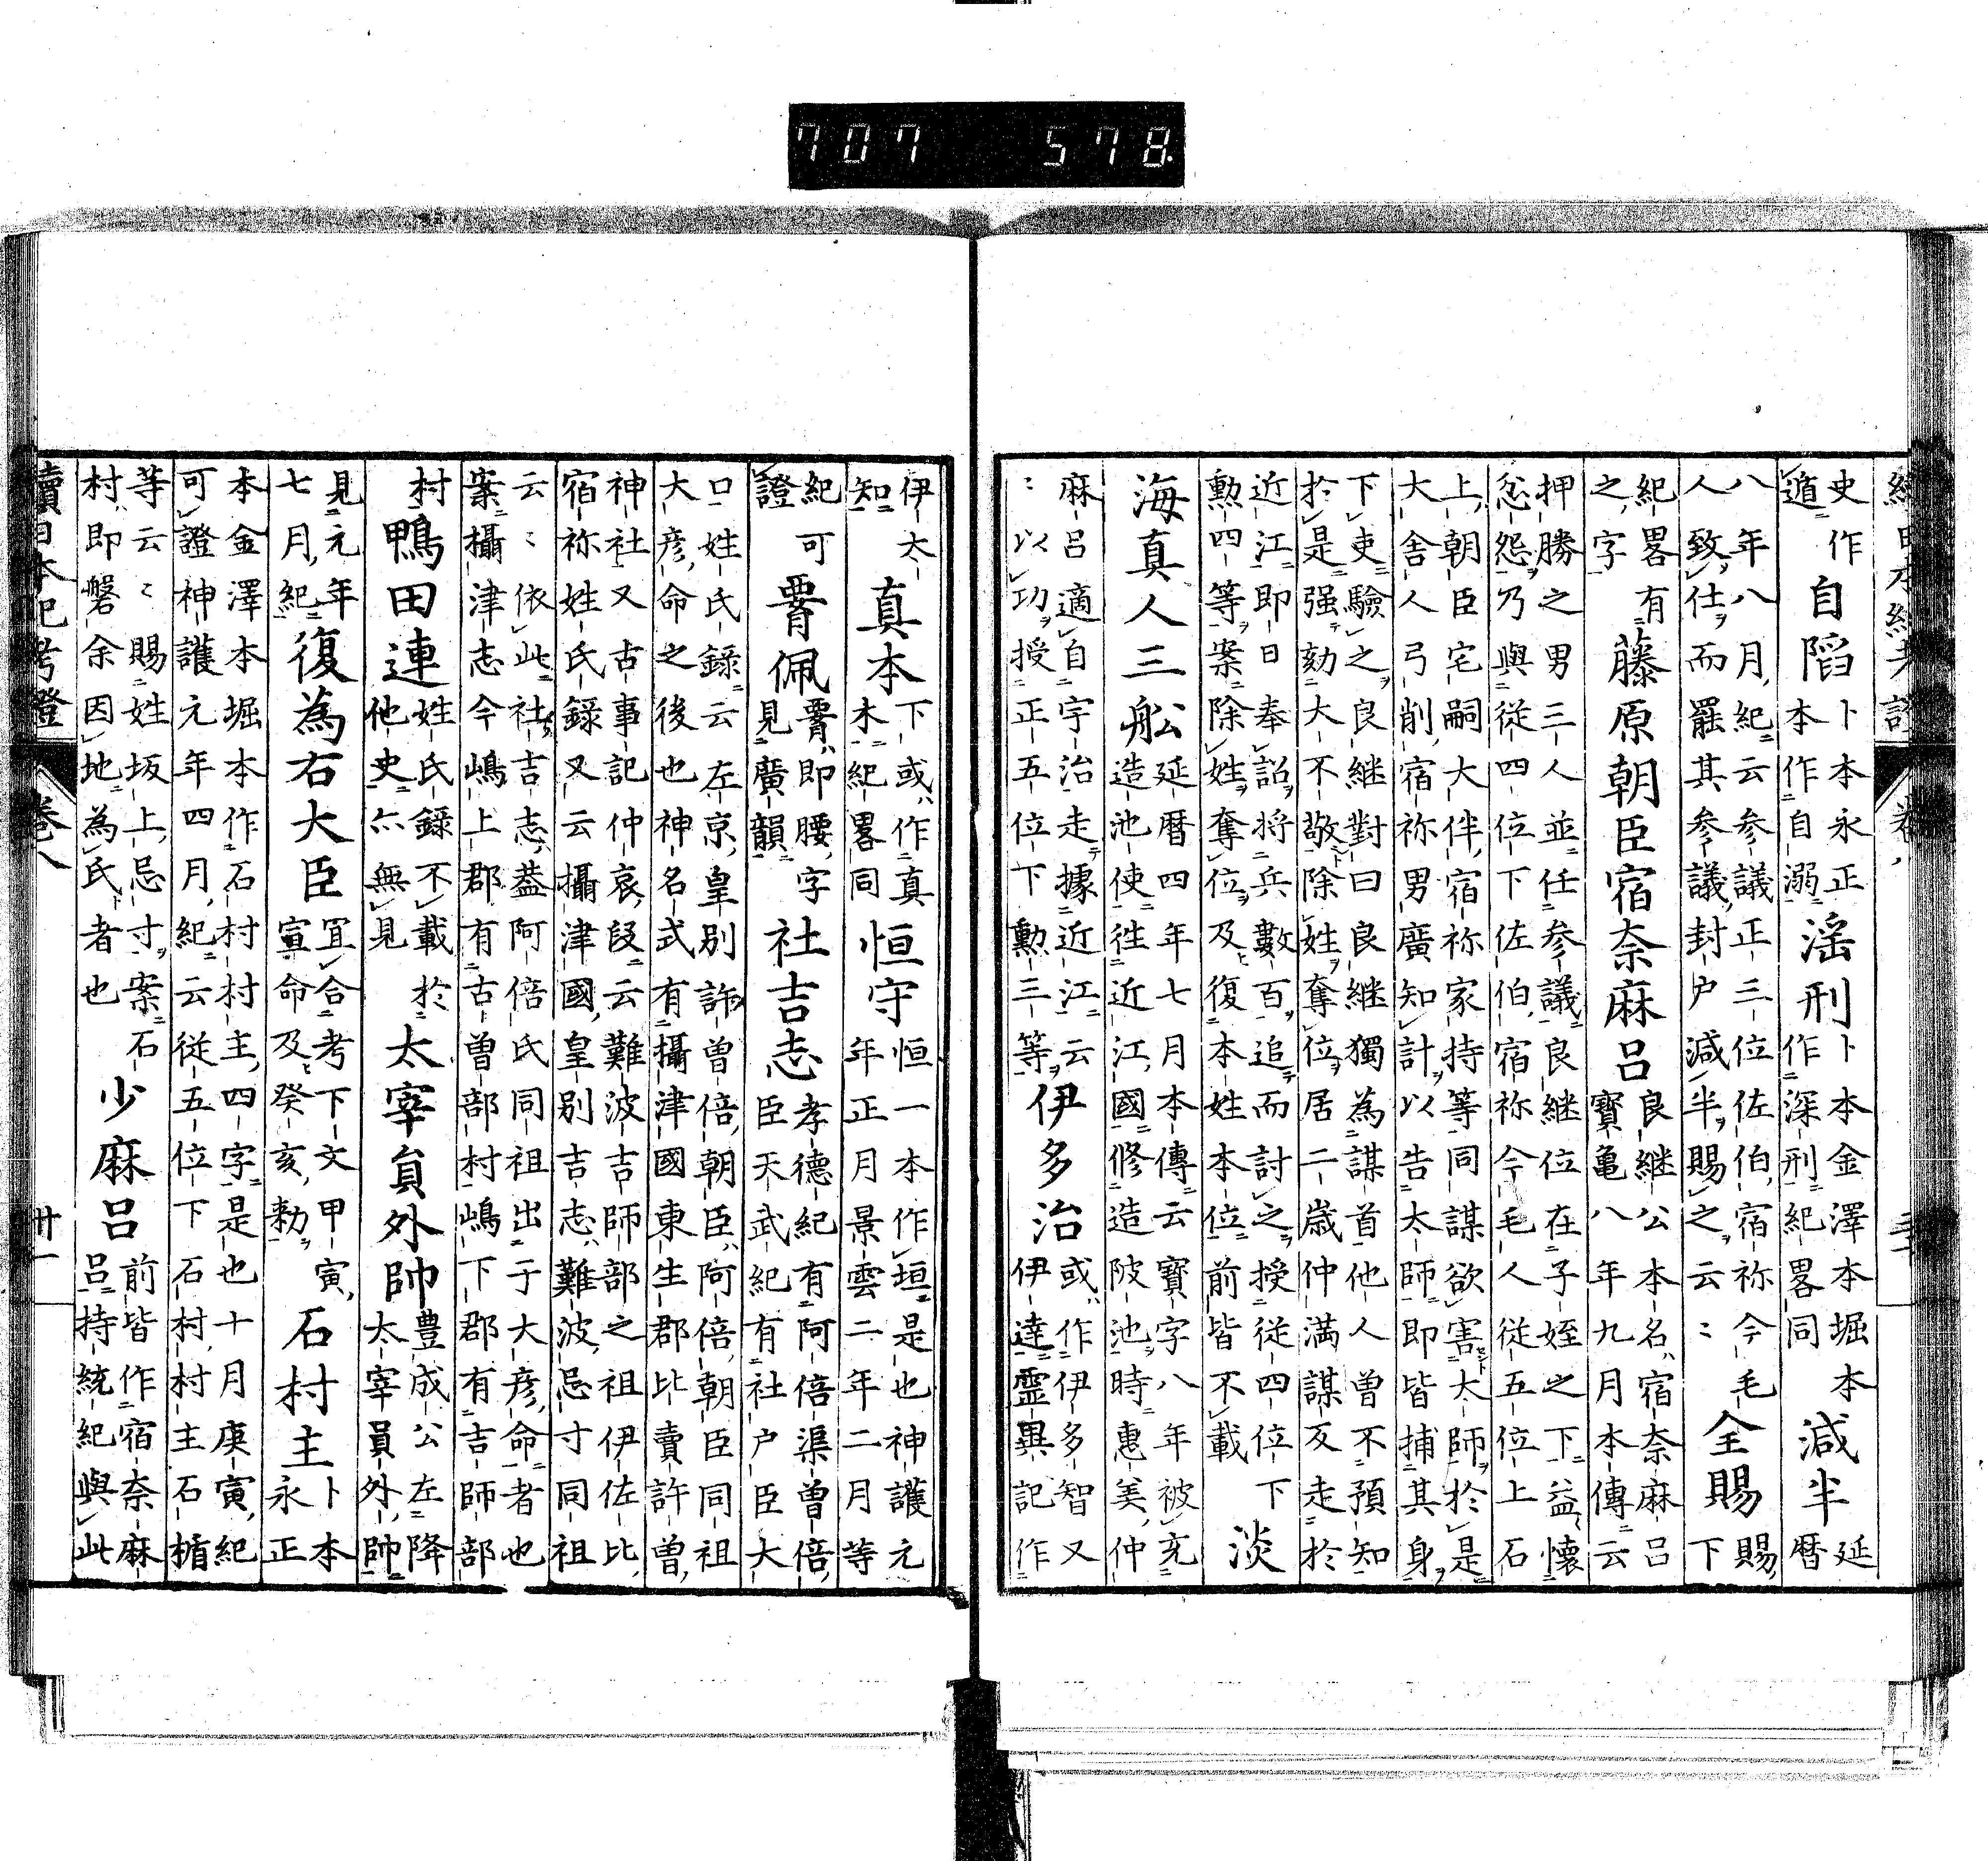 續日本紀考證 卷八 三十
史作
遁
自䧟
卜本永正
本作自溺
滛刑
卜本金澤本堀本
作深刑紀畧同
減半
延
暦
八年八月紀云参議正三位佐伯宿祢今毛
人致仕而罷其参議封戸減半賜之云〻
全賜
賜
下
紀畧有
之字
藤原朝臣宿奈麻呂
良継公本名宿奈麻呂
寳亀八年九月本傳云
押勝之男三人並任参議良継位在子姪之下益懷
忿怨乃與從四位下佐伯宿祢今毛人從五位上石
上朝臣宅嗣大伴宿祢家持等同謀欲害太師於是
大舎人弓削宿祢男廣知計以告太師即皆捕其身
下吏驗之良継對曰良継獨為謀首他人曽不預知
於是强劾大不敬除姓奪位居二歳仲満謀反走於
近江即日奉詔将兵數百追而討之授從四位下
勲四等案除姓奪位及復本姓本位前皆不載
淡
海真人三舩
延暦四年七月本傳云寳字八年被充
造池使徃近江國修造陂池時惠美仲
麻呂適自宇治走據近江云
〻以功授正五位下勲三等
伊多治
或作伊多智又
伊達靈異記作
伊太
知
真本
下或作真
木紀畧同
恒守
恒一本作垣是也神護元
年正月景雲二年二月等
紀可
證
䙅佩
䙅即腰字
見廣韻
社吉志
孝德紀有阿倍渠曽倍
臣天武紀有社戸臣大
口姓氏録云左京皇別許曽倍朝臣阿倍朝臣同祖
大彦命之後也神名式有攝津國東生郡比賣許曽
神社又古事記仲哀段云難波吉師部之祖伊佐比
宿祢姓氏録又云攝津國皇別吉志難波忌寸同祖
云〻依此社吉志葢阿倍氏同祖出于大彦命者也
案攝津志今嶋上郡有古曽部村嶋下郡有吉師部
村
鴨田連
姓氏録不載於
他史亦無見
太宰貟外帥
豊成公左降
太宰員外帥
見元年
七月紀
復為右大臣
冝合考下文甲寅
宣命及癸亥勅
石村主
卜本
永正
本金澤本堀本作石村村主四字是也十月庚寅紀
可證神護元年四月紀云從五位下石村村主石楯
等云〻賜姓坂上忌寸案石
村即磐余因地為氏者也
少麻呂
前皆作宿奈麻
呂持統紀與此
續日本紀考證 卷八 卅一
707 578